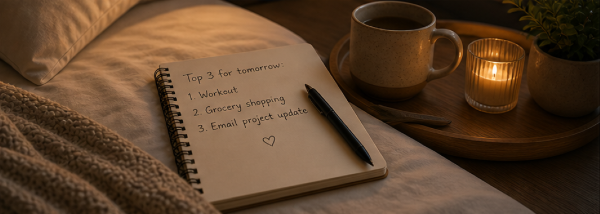 Top 3 for tomorrow:
1. Workout
2. Grocery shopping
3. Email project update
♡